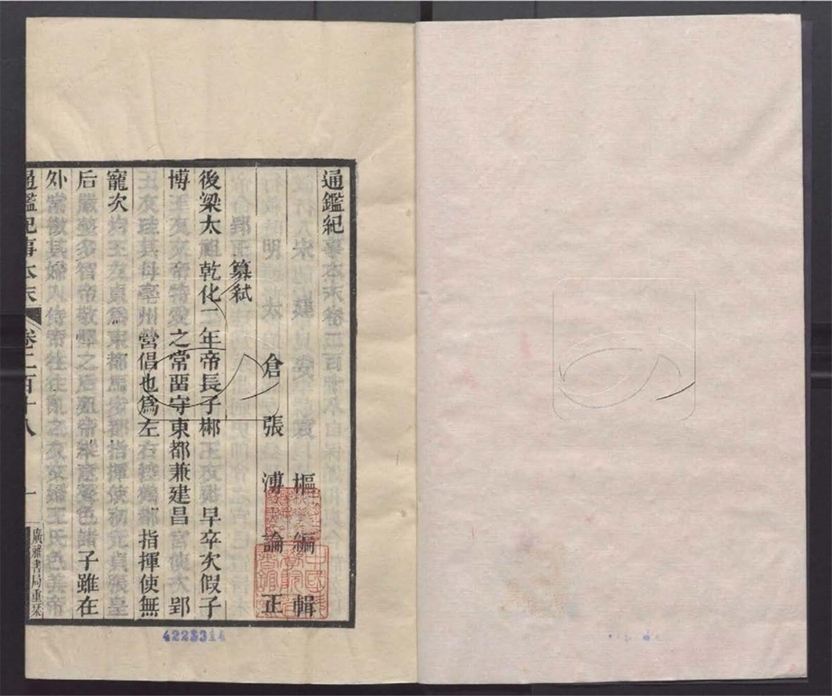 通鑑紀事本末卷二百十八
宋 建安 袁 樞 編輯
明 太 倉 張 溥 論正
郢王篡弒
後梁太祖乾化二年帝長子郴王友裕早卒次假子
博王友文帝特愛之常畱守東都兼建昌宮使次郢
王友珪其母亳州營倡也爲左右控鶴都指揮使無
寵次均王友貞爲東都馬步都指揮使初元貞張皇
后嚴整多智帝敬憚之后殂帝縱意聲色諸子雖在
外常徵其婦入侍帝往往亂之友文婦王氏色美帝
通鑑紀事本末 卷二百十八 一 廣雅書局重栞